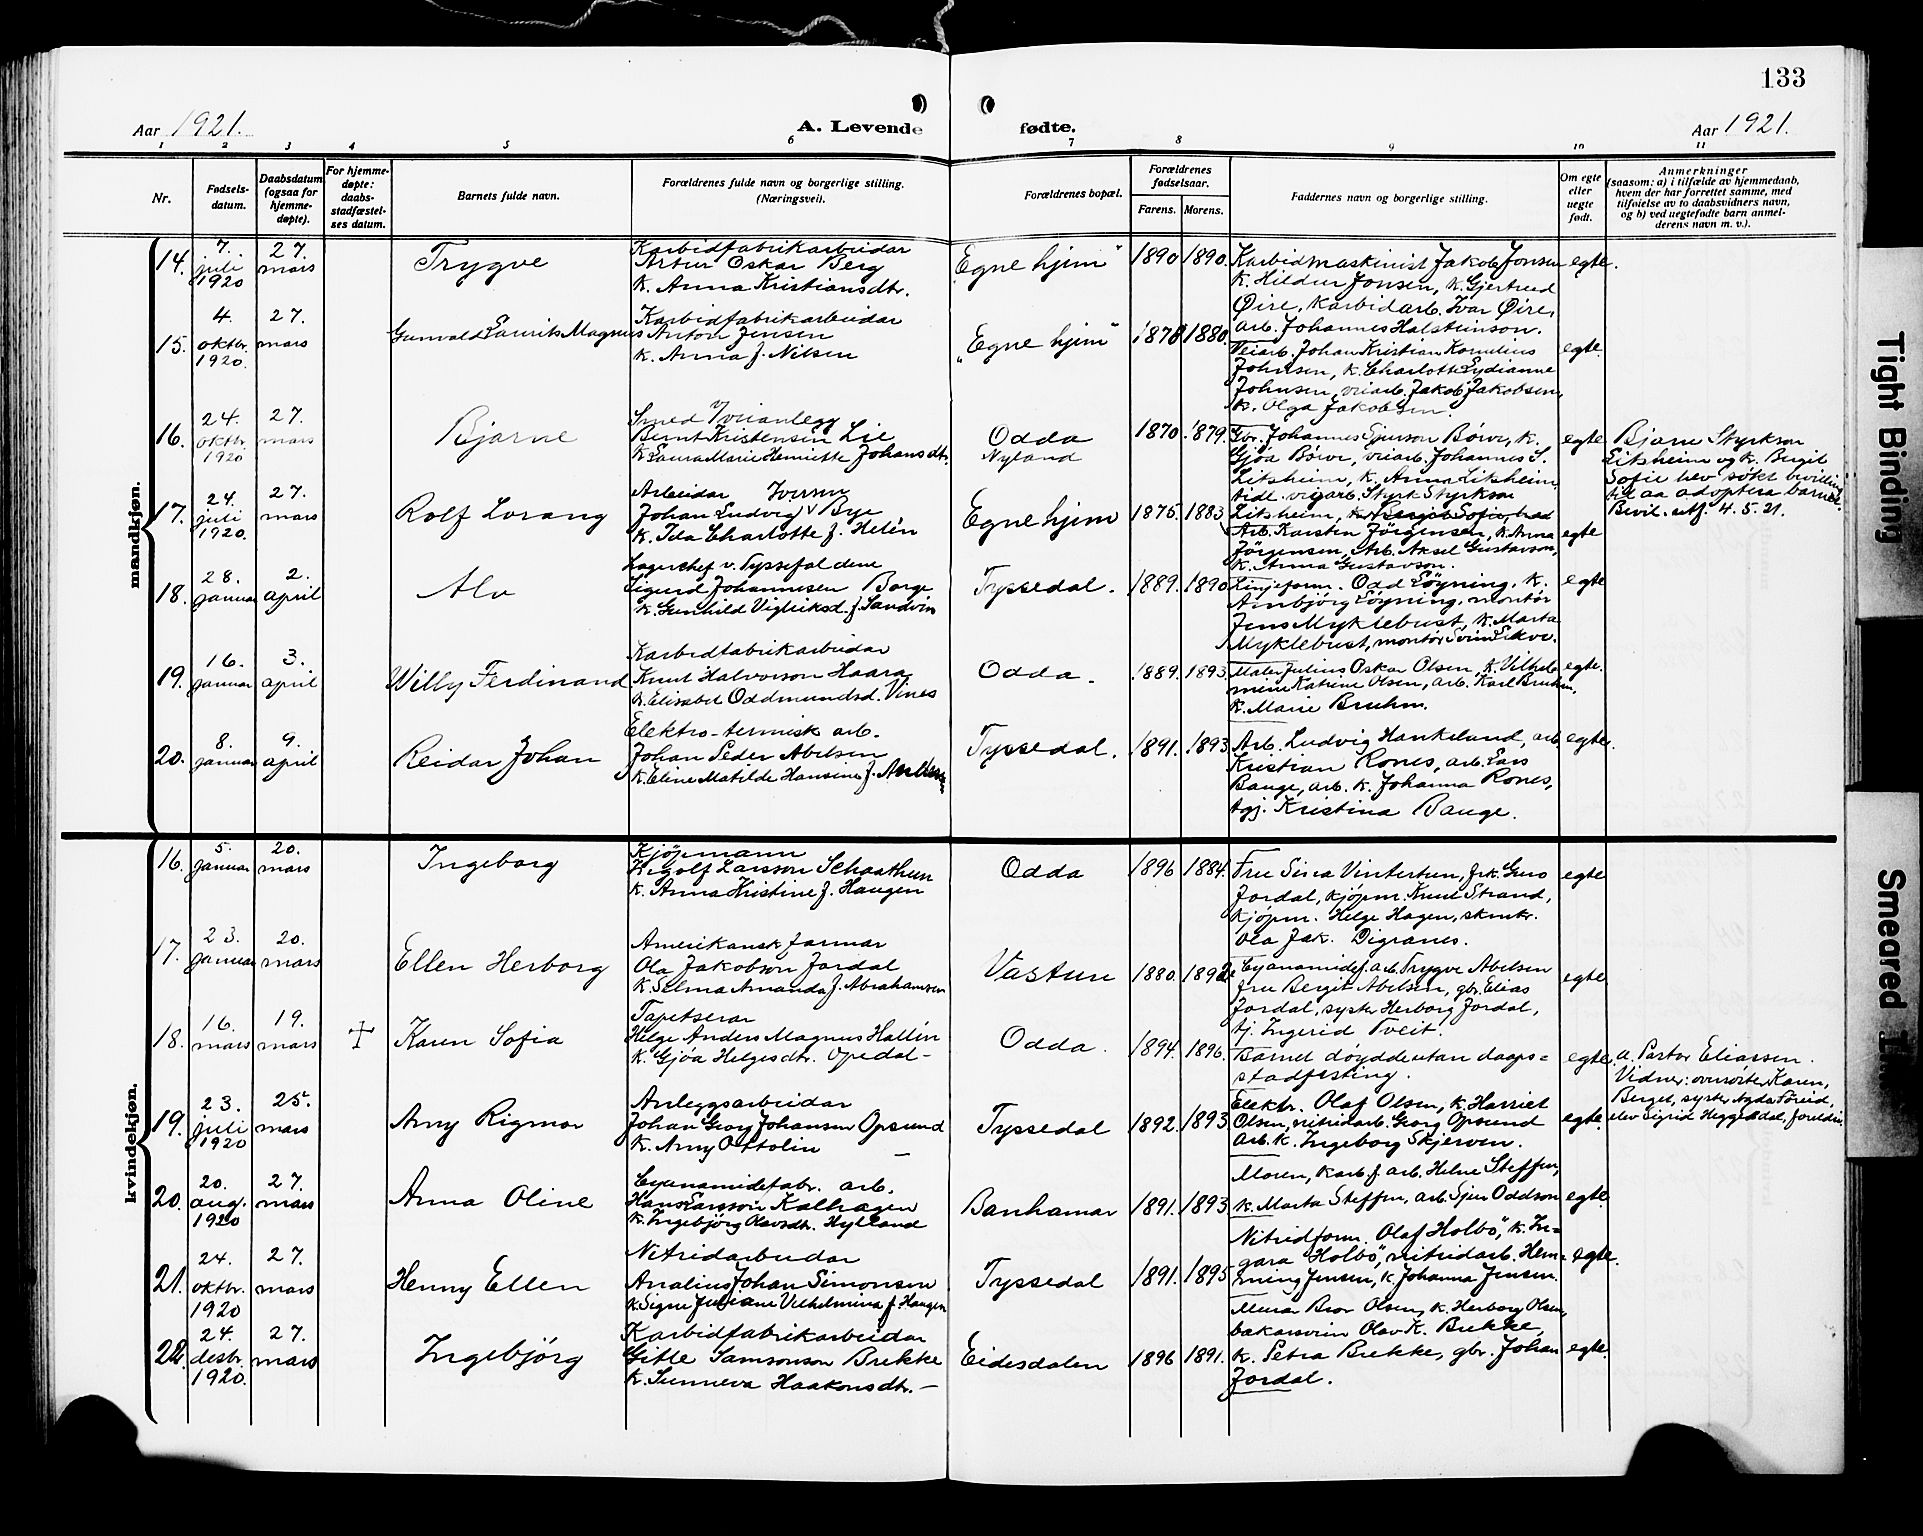 133
Aar 1921.
A. Levende fødte.
Aar 1921.
1 2 3 4 5 6 7 8 9 10 11
Nr.
Fødsels-
datum.
Daabsdatum
(ogsaa for
hjemme-
døpte).
For hjemme-
døpte:
daabs-
stadfæstel-
ses datum.
Barnets fulde navn.
Forældrenes fulde navn og borgerlige stilling.
(Næringsvei).
Forældrenes bopæl.
Forældrenes
fødselsaar.
Farens. Morens.
Faddernes navn og borgerlige stilling.
Om egte
eller
uegte
født.
Anmerkninger
(saasom: a) i tilfælde av hjemmedaab,
hvem der har forrettet samme, med
tilføielse av to daabsvidners navn,
og b) ved uegtefødte barn anmel-
derens navn m. v.).
mandkjøn.
14.
7.
juli
1920
27.
mars
Trygve
Karbidfabrikarbeidar
Artur Oskar Berg
k. Anna Kristiansdtr.
"Egne hjim"
1890 1890.
Karbidmaskinist Jakob Jonsen
k. Hildur Jonsen, k. Gjertrud
Øire, karbidarb. Ivar Øire,
arb. Johannes Halsteinson.
egte.
15.
4.
oktbr.
1920.
27.
mars
Gunvald Laurits Magnus
Karbidfabrikarbeidar
Anton Jensen
k. Anna f. Nilsen
"Egne hjim"
1878 1880.
Veiarb. Johan Kristian Kornelius
Johnsen, k. Charlotte Lydianne
Johnsen, veiarb. Jakob Jakobsen,
k. Olga Jakobsen.
egte.
16.
24.
oktbr.
1920
27.
mars
Bjarne
Smed v/ veianlegg
Bernt Kristensen Lie
k. Laura Marie Henriette Johansdtr.
Odda
Nyland
1870. 1879.
Gbr. Johannes Sjurson Børve, k.
Gjøa Børve, veiarb. Johannes S.
Eitsheim, k. Anna Eitsheim,
tidl. veiarb. Styrk Styrkson
Eitsheim,
egte
Bjarne Styrkson
Eitsheim og k. Bergit
Sofie hev søkt bevilling
til aa adoptera barnet.
Bevil. utf. 4.5.21.
17.
24.
juli
1920.
27.
mars
Rolf Lorang
Arbeidar Iversen
Johan Ludvig v Bye
k. Ida Charlotte f. Helén
Egne hjim
1875. 1883
Arb. Karsten Jörgensen, k. Anna
Jörgensen, Arb. Aksel Gustavson,
k. Anna Gustavson.
egte
18.
28.
januar
2.
april
Alv
Lagerchef v. Tyssefaldene
Sigurd Johannesen Borge
k. Gunhild Vigleiksd. f. Sandvin
Tyssedal.
1889. 1890
Linjeform. Odd Löyning, k.
Ambjörg Löyning, montör
Jens Myklebust, k. Marta
Myklebust, montör Svein Ekve.
egte
19.
16.
januar
3.
april
Willy Ferdinand
Karbidfabrikarbeidar
Knut Halvorson Haara
k. Elisabet Oddmundsd. Vines
Odda.
1889. 1893
Maler Julius Oskar Olsen, k. Vilhel-
mine Katrine Olsen, arb. Karl Bruhm,
k. Marie Bruhm.
egte.
20.
8.
januar
9.
april
Reidar Johan
Elektro-termisk arb.
Johan Peder Abelsen
k. Eline Matilde Hansine f.
Tyssedal.
1891. 1893
Arb. Ludvig Hankeland, arb.
Kristian Rones, arb. Lars
Bauge, arb. k. Johanna Rones,
tgj. Kristina Bauge.
egte.
kvindekjøn.
16.
5.
januar
20.
mars
Ingeborg
Kjöpmann
Ingolf Larsson Schaathun
k. Anna Kristine f. Haugen
Odda
1896 1884.
Fru Sina Vintertun, frk. Guro
Jordal, kjöpm. Knut Strand,
kjöpm. Helge Hagen,
Ola Jak. Digranes.
egte
17.
23.
januar
20.
mars
Ellen Herborg
Amerikansk farmar
Ola Jakobson Jordal
k. Selma Amanda f. Abrahamsen
Vastun
1880. 1892
Cyanamidef. arb. Trygve Abelsen
fru Bergit Abelsen, gbr. Elias
Jordal, syster Herborg Jordal,
tj. Ingerid Tveit.
egte.
18.
16.
mars
19.
mars
Karen Sofia
Tapetserar
Helge Anders Magnus Hallén
k. Gjöa Helgesdtr. Opedal —
Odda.
1894. 1896.
Barnet döydde utan daaps=
stadfesting.
egte.
a. Pastor Eliassen.
Vidner: oversöster Karen
Berget, syster Agda Töreid,
elev Sigrid Heggedal, foreldri.
19.
23.
juli
1920
25.
mars
Arny Rigmor
Anleggsarbeidar
Johan Georg Johansen Opsund
k. Arny Ottolin —
Tyssedal
1892. 1893
Elektr. Olaf Olsen, k. Harriet
Olsen, nitridarb. Georg Opsund
arb. k. Ingeborg Skjerven.
egte.
20.
20.
aug.
1920
27.
mars
Anna Oline
Cyanamidefabr. arb.
Hans Larsson Kalhagen
k. Ingebjörg Olavsdtr. Hylland
Banhamar
1891. 1893
Moren, karb. f. arb. Helne Steffen,
k. Marta Steffen, arb. Sjur Oddson
egte.
21.
24.
oktbr.
1920
27.
mars
Henny Ellen
Nitridarbeidar
Analius Johan Simonsen
k. Signe Juliane Vilhelmina f. Haugen
Tyssedal
1891. 1895
Nitridform. Olaf Holbö, k. In-
gara Holbö, nitridarb. Hem-
ming Jensen, k. Johanna Jensen.
egte.
22.
24.
desbr.
1920.
27.
mars
Ingebjörg
Karbidfabrikarbeidar
Gitle Samsonson Brekke
k. Sunneva Haakonsdtr. —
Eidesdalen
1896 1891.
Murar Bror Olsen, k. Herborg Olsen,
bakarsvein Olav K. Brekke,
k. Petra Brekke, gbr. Johan
Jordal.
egte.
Tight Binding
Smeared